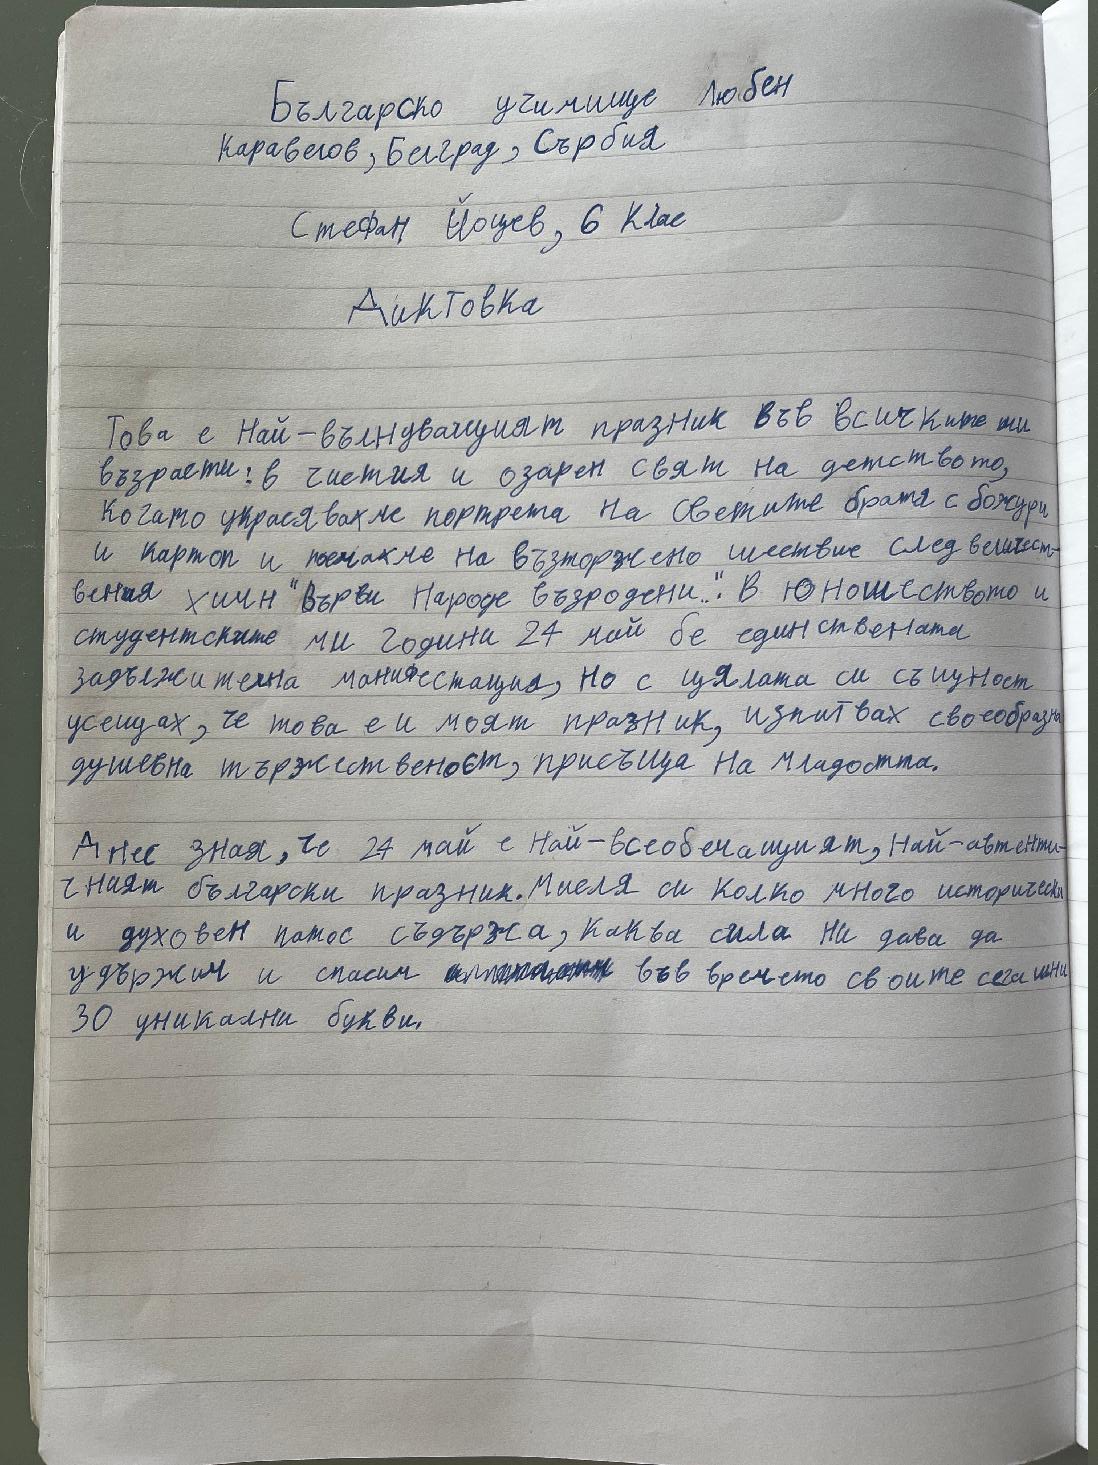 Българско училище Любен
Каравелов, Белград, Сърбия
Стефан Йоцев, 6 клас
Диктовка
Това е Най-вълнуващият празник във всичките ми
възрасти: в чистия и озарен свят на детството,
когато украсявахме портрета на светите братя с божури
и картон и поемахме на възторжено шествие след величест-
вения химн "Върви Народе възродени..". В юношеството и
студентските ми години 24 май бе единствената
задължителна манифестация, но с цялата си същност
усещах, че това е и моят празник, изпитвах своеобразна
душевна тържественост, присъща на младостта.
Днес зная, че 24 май е Най-всеобечащият, Най-автенти-
чният български празник. Мисля си колко много исторически
и духовен патос съдържа, каква сила ни дава да
удържим и спасим във времето своите сегашни
30 уникални букви.